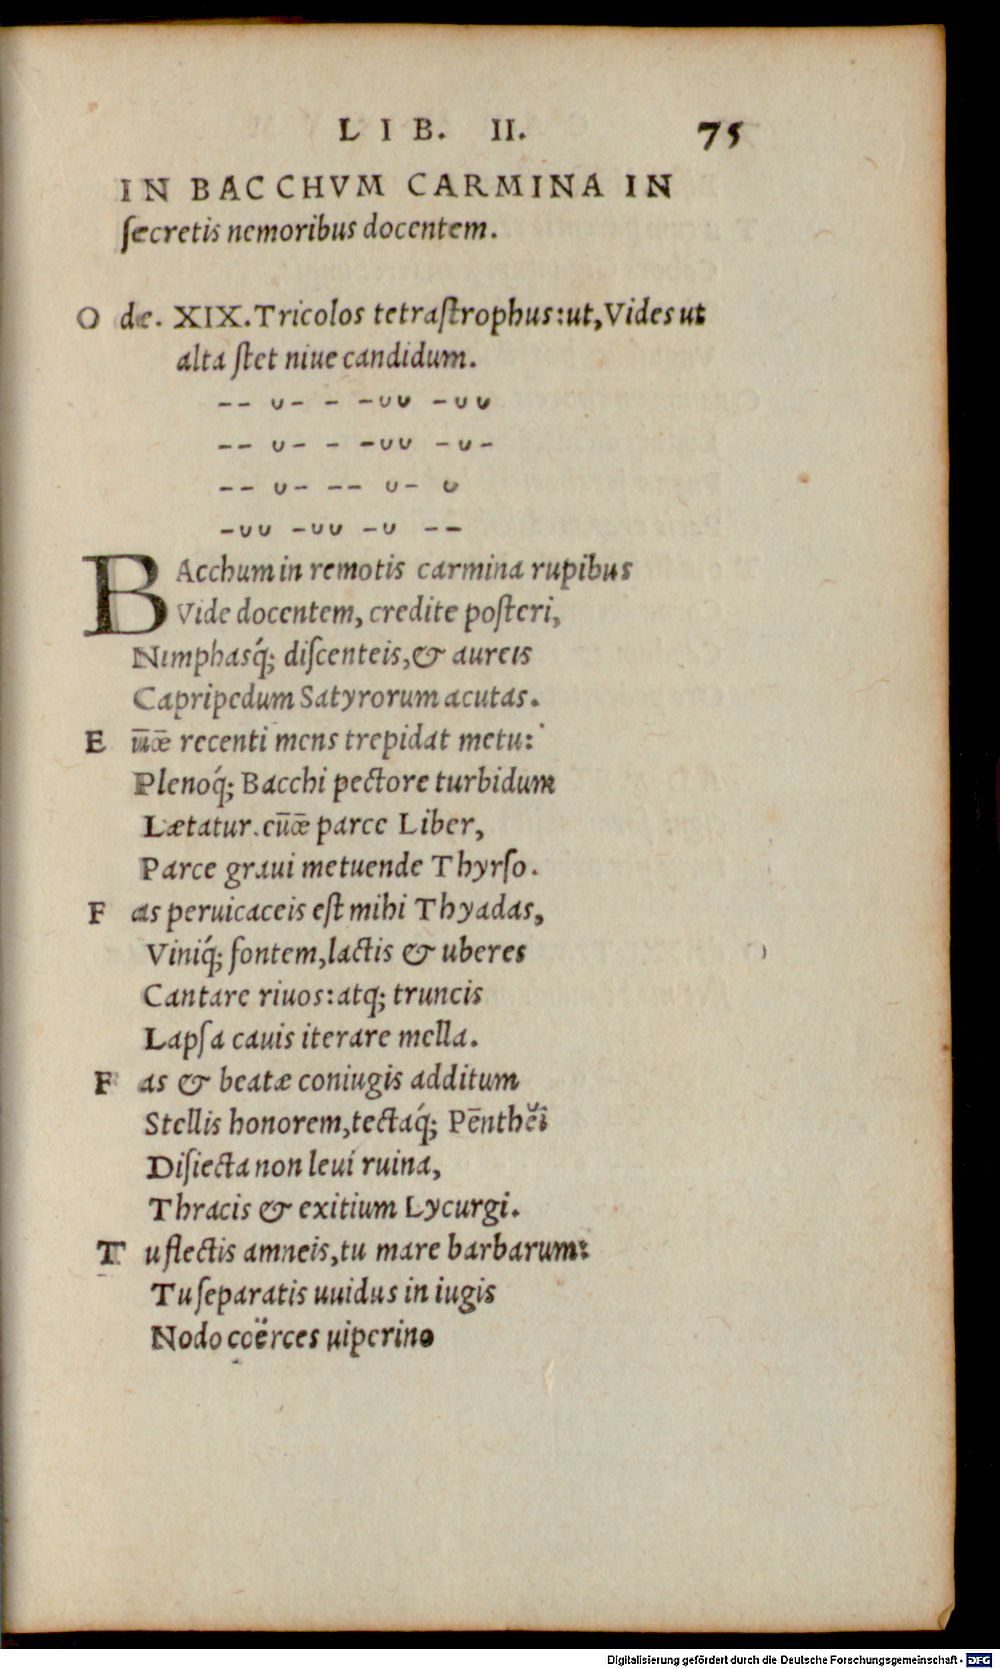 LIB. II. 75
IN BACCHVM CARMINA IN
ſecretis nemoribus docentem.
O de. XIX. Tricolos tetraſtrophus: ut, Vides ut
alta ſtet niue candidum.
-- ᴗ- - -ᴗᴗ -ᴗᴗ
-- ᴗ- - -ᴗᴗ -ᴗ-
-- ᴗ- -- ᴗ- ᴗ
-ᴗᴗ -ᴗᴗ -ᴗ --
BAcchum in remotis carmina rupibus
Vide docentem, credite poſteri,
Nimphasq́; diſcenteis, & aureis
Capripedum Satyrorum acutas.
E ūœ̄ recenti mens trepidat metu:
Plenoq́; Bacchi pectore turbidum
Lætatur. eūœ̄ parce Liber,
Parce graui metuende Thyrſo.
F as peruicaceis eſt mihi Thyadas,
Viniq́; fontem, lactis & uberes
Cantare riuos: atq; truncis
Lapſa cauis iterare mella.
F as & beatæ coniugis additum
Stellis honorem, tectaq́; Pēnthĕî
Diſiecta non leui ruina,
Thracis & exitium Lycurgi.
T u flectis amneis, tu mare barbarum:
Tu ſeparatis uuidus in iugis
Nodo coërces uiperino
Digitalisierung gefördert durch die Deutsche Forschungsgemeinschaft - DFG